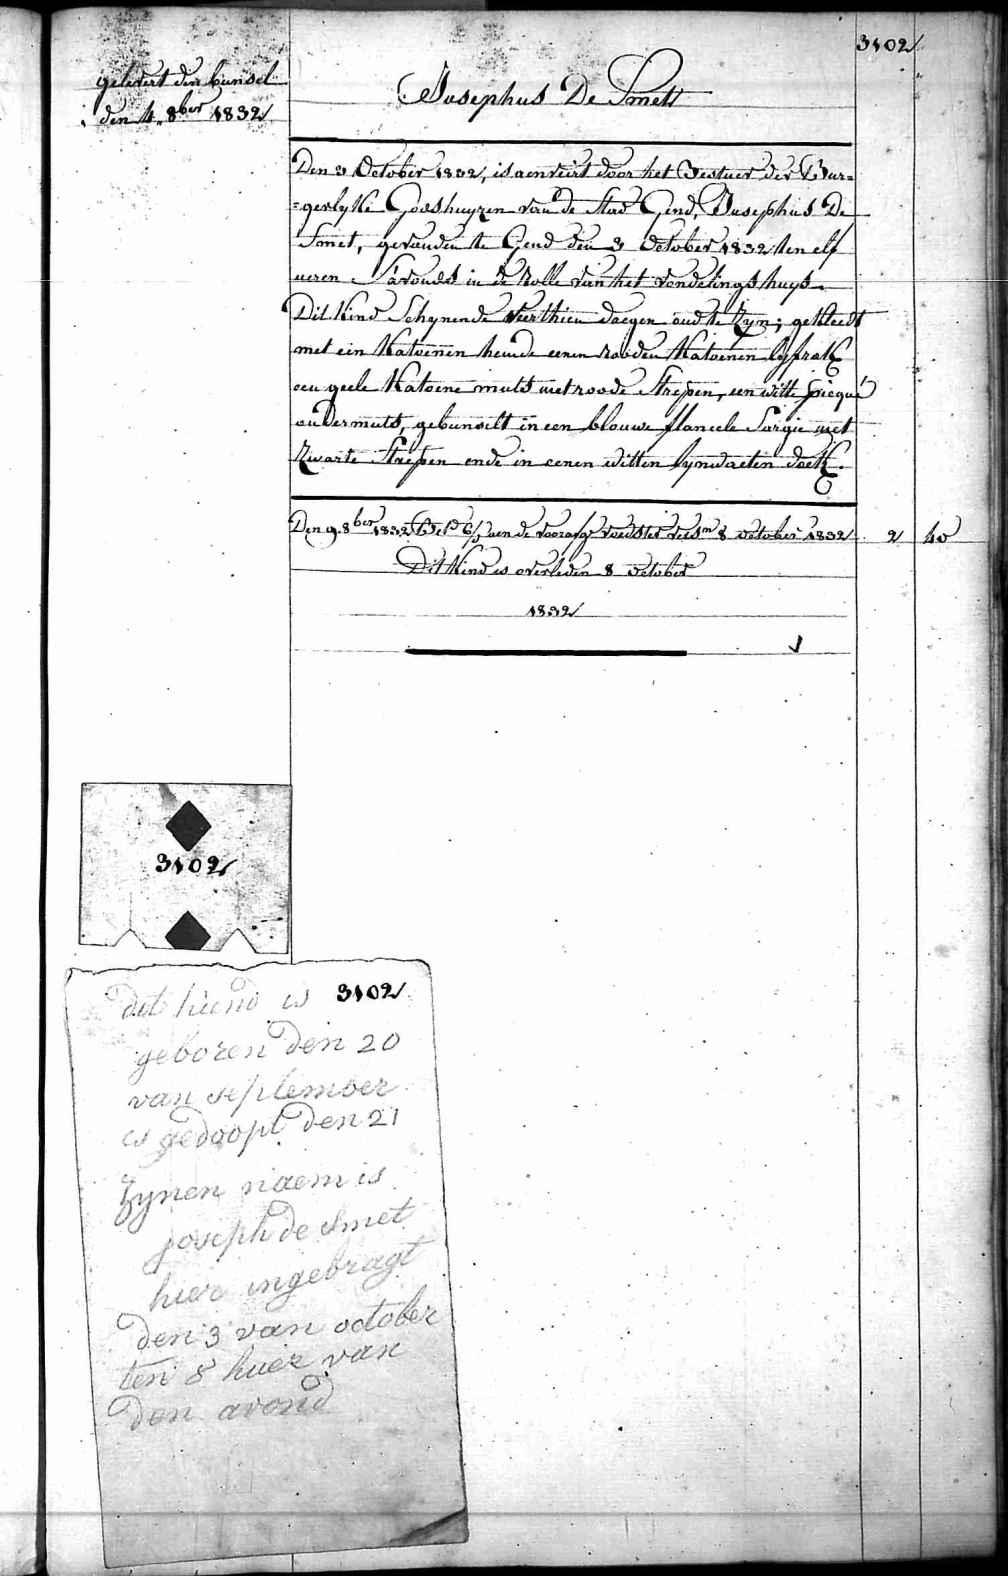 3102
gelevert den bunsel
den 4 8ber 1832
Josephus De Smet
Den 3 October 1832, is aenveirt door het Bestuer der Bur=
=gerlyke Godshuyzen van de Stad Gend, Josephus De
Smet, gevonden te Gend den 3 October 1832 ten elf
ueren S'avonds in de Rolle van het vondelings huys.
Dit Kind Schynende Veerthien daegen oud te Zyn; gekleedt
met een Katoenen hemde eenen rooden Katoenen lyfrak
een geele Katoene muts met roode Strepen, een witte picqué
ondermuts, gebunselt in een blauwe flanele Sargie met
Zwarte Strepen ende in eenen witten lynwaeten doek.
Den 9 8ber 1832 aen de voedster 8 october 1832 2 40
Dit Kind is overleden 8 october
1832
3102
3102
dit kiend is
geboren den 20
van september
is gedoopt den 21
zynen naem is
joseph de smet
hier ingebragt
den 3 van october
ten 8 huer van
den avond